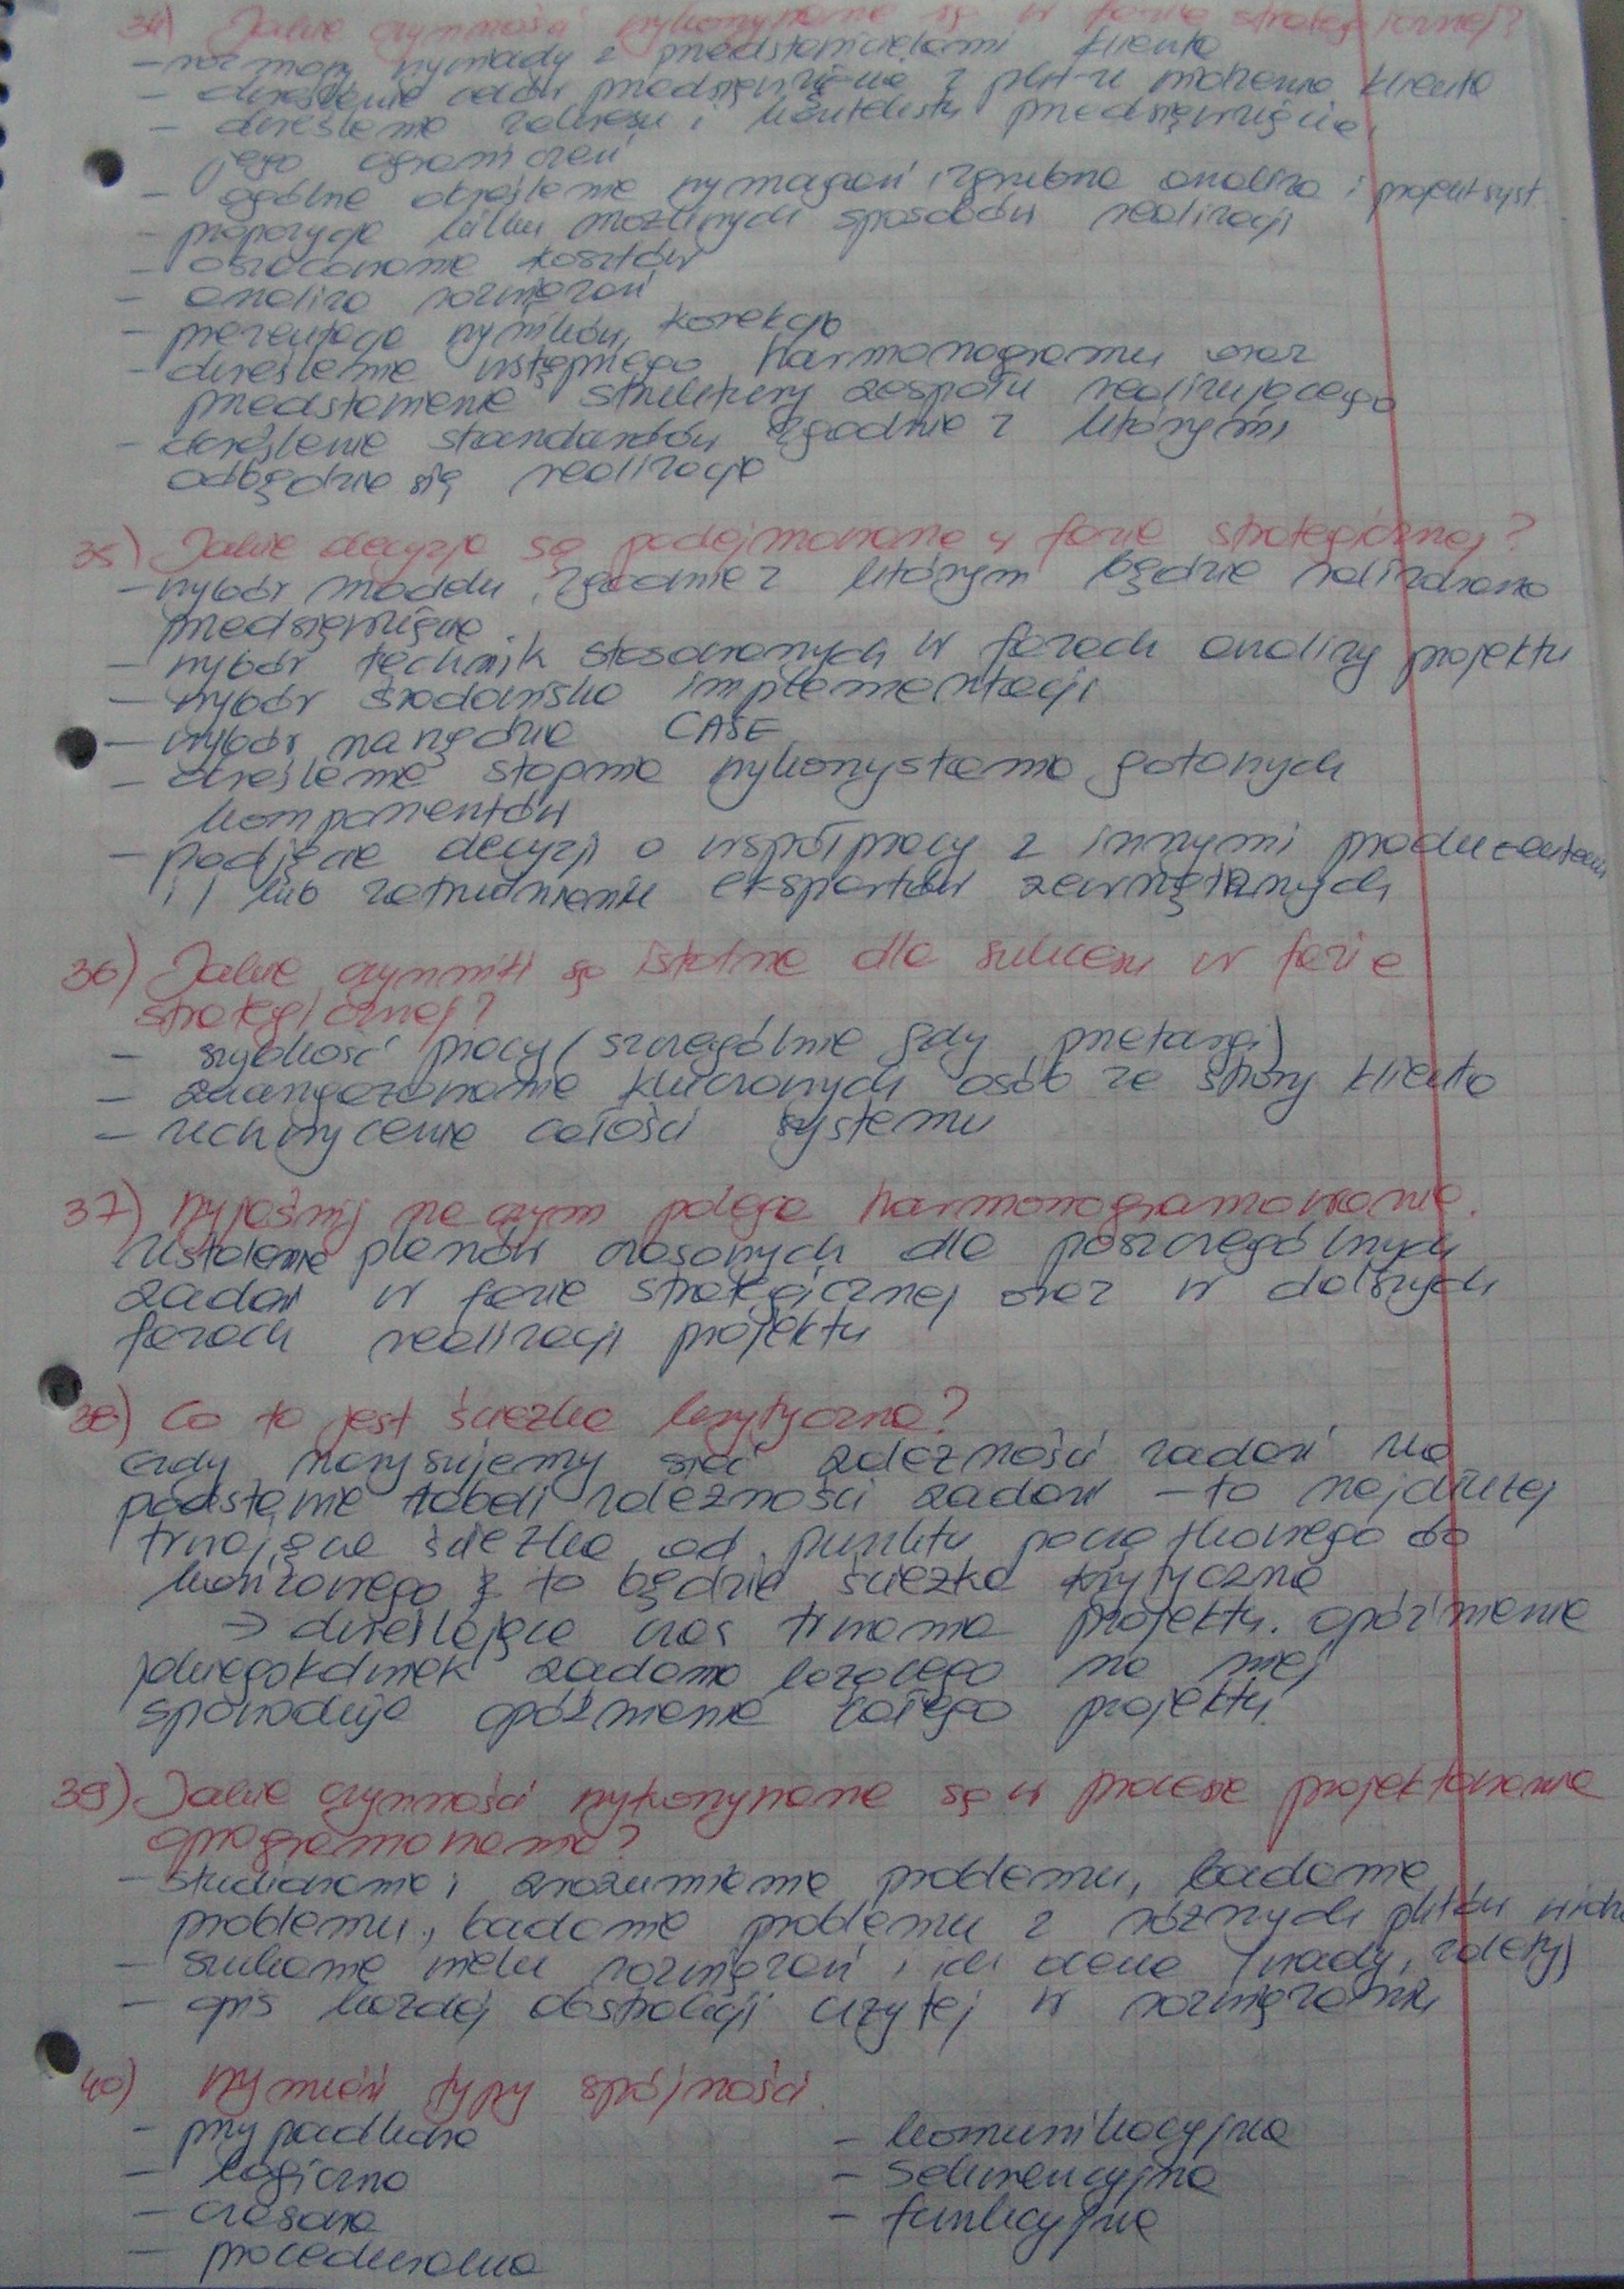 34) Jakie czynności wykonywane są w fazie strategicznej?
- rozmowy, wywiady z przedstawicielami klienta
- określenie celów przedsięwzięcia z pkt-u widzenia klienta
- określenie zakresu i kontekstu przedsięwzięcia,
jego ograniczeń
- ogólne określenie wymagań, zgrubna analiza i projekt syst.
- propozycja kilku możliwych sposobów realizacji
- oszacowanie kosztów
- analiza rozwiązań
- prezentacja wyników, korekcja
- określenie wstępnego harmonogramu oraz
przedstawienie struktury zespołu realizującego
- określenie standardów zgodnie z którymi
odbędzie się realizacja
35) Jakie decyzje są podejmowane w fazie strategicznej?
- wybór modelu, zgodnie z którym będzie realizowane
przedsięwzięcie
- wybór technik stosowanych w fazach analizy projektu
- wybór środowiska implementacji
- wybór narzędzia CASE
- określenie stopnia wykorzystania gotowych
komponentów
- podjęcie decyzji o współpracy z innymi producentami
i / lub zatrudnieniu ekspertów zewnętrznych
36) Jakie czynniki są istotne dla sukcesu w fazie
strategicznej?
- szybkość pracy (szczególnie gdy przetargi)
- zaangażowanie kluczowych osób ze strony klienta
- uchwycenie całości systemu
37) Wyjaśnij na czym polega harmonogramowanie.
Ustalenie planów czasowych dla poszczególnych
zadań w fazie strategicznej oraz w dalszych
fazach realizacji projektu
38) Co to jest ścieżka krytyczna?
Gdy narysujemy sieć zależności zadań na
podstawie tabeli zależności zadań - to najdłużej
trwająca ścieżka od punktu początkowego do
końcowego to będzie ścieżka krytyczna
→ określająca czas trwania projektu. opóźnienie
jakiegokolwiek zadania leżącego na niej
spowoduje opóźnienie całego projektu.
39) Jakie czynności wykonywane są w procesie projektowania
oprogramowania?
- studiowanie i zrozumienie problemu, badanie
problemu, badanie problemu z różnych pktów widze
- szukanie wielu rozwiązań i ich ocena (wady, zalety)
- opis każdej abstrakcji użytej w rozwiązaniu
40) Wymień typy spójności.
- przypadkowa
- logiczna
- czasowa
- proceduralna
- komunikacyjna
- sekwencyjna
- funkcyjna